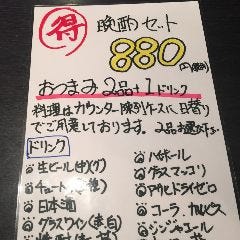 得 晩酌セット
880
円(税別)
おつまみ 2品+1ドリンク
料理はカウンター陳列ケースに日替り
でご用意しております。2品お選び下さい
ドリンク
生ビール(中)(グ)
チューハイ
日本酒
グラスワイン(赤・白)
ハイボール
グラスマッコリ
アサヒドライゼロ
コーラ、カルピス
ジンジャエール